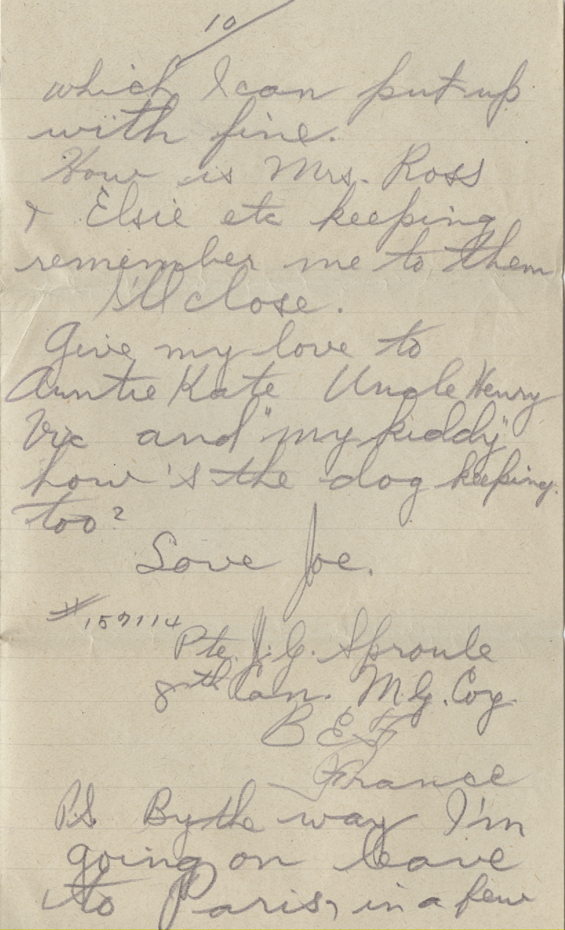 10
which I can put up
with fine.
How is Mrs. Ross
& Elsie etc keeping
remember me to them
I'll close.
Give my love to
Auntie Kate Uncle Henry
Vic and "my kiddy"
how's the dog keeping
too?
Love Joe.
#157114
Pte. J. G. Sproule
8th Can. M.G. Coy.
B E F
France
P.S. By the way I'm
going on leave
to Paris, in a few